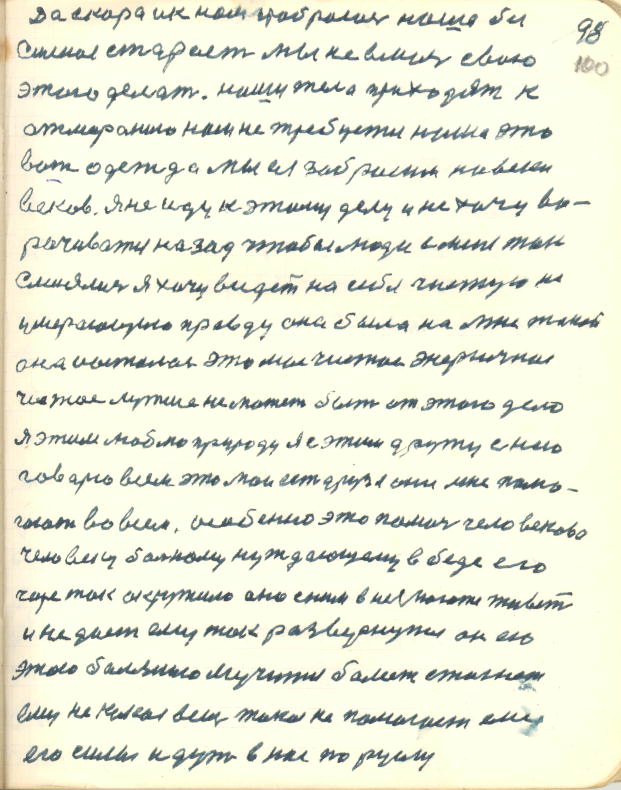 98
100
Да скора ик нам набралас наша бу
смысл стараест мы не влияя свою
этого делат. наши тела приходят к
отмиранию нам не требуется нужна это
вот одежда мы ея забросим на веки
веков. Я не иду к этому делу и не хочу во-
рачиватся назад чтобы люди мной так
смеялис я хочу видет на себя чистую не
умерающую правду она была на мне такой
она осталас это мое чистое энергичное
чистое лутше не может быт от этого дело
я этим люблю природу я с этим дружу с нею
говарю всем это мои ест друзя они мне помо-
гают во всем, особенно это помоч человекова
человеку болному нуждающему в беде его
горе так окружило оно с ним в не живёт
и не дает ему так развернутся он ею
этого болзнию мучится болеет станет
ему не нужная вещ такая не помогает ему
его силы идут в нас по руслу